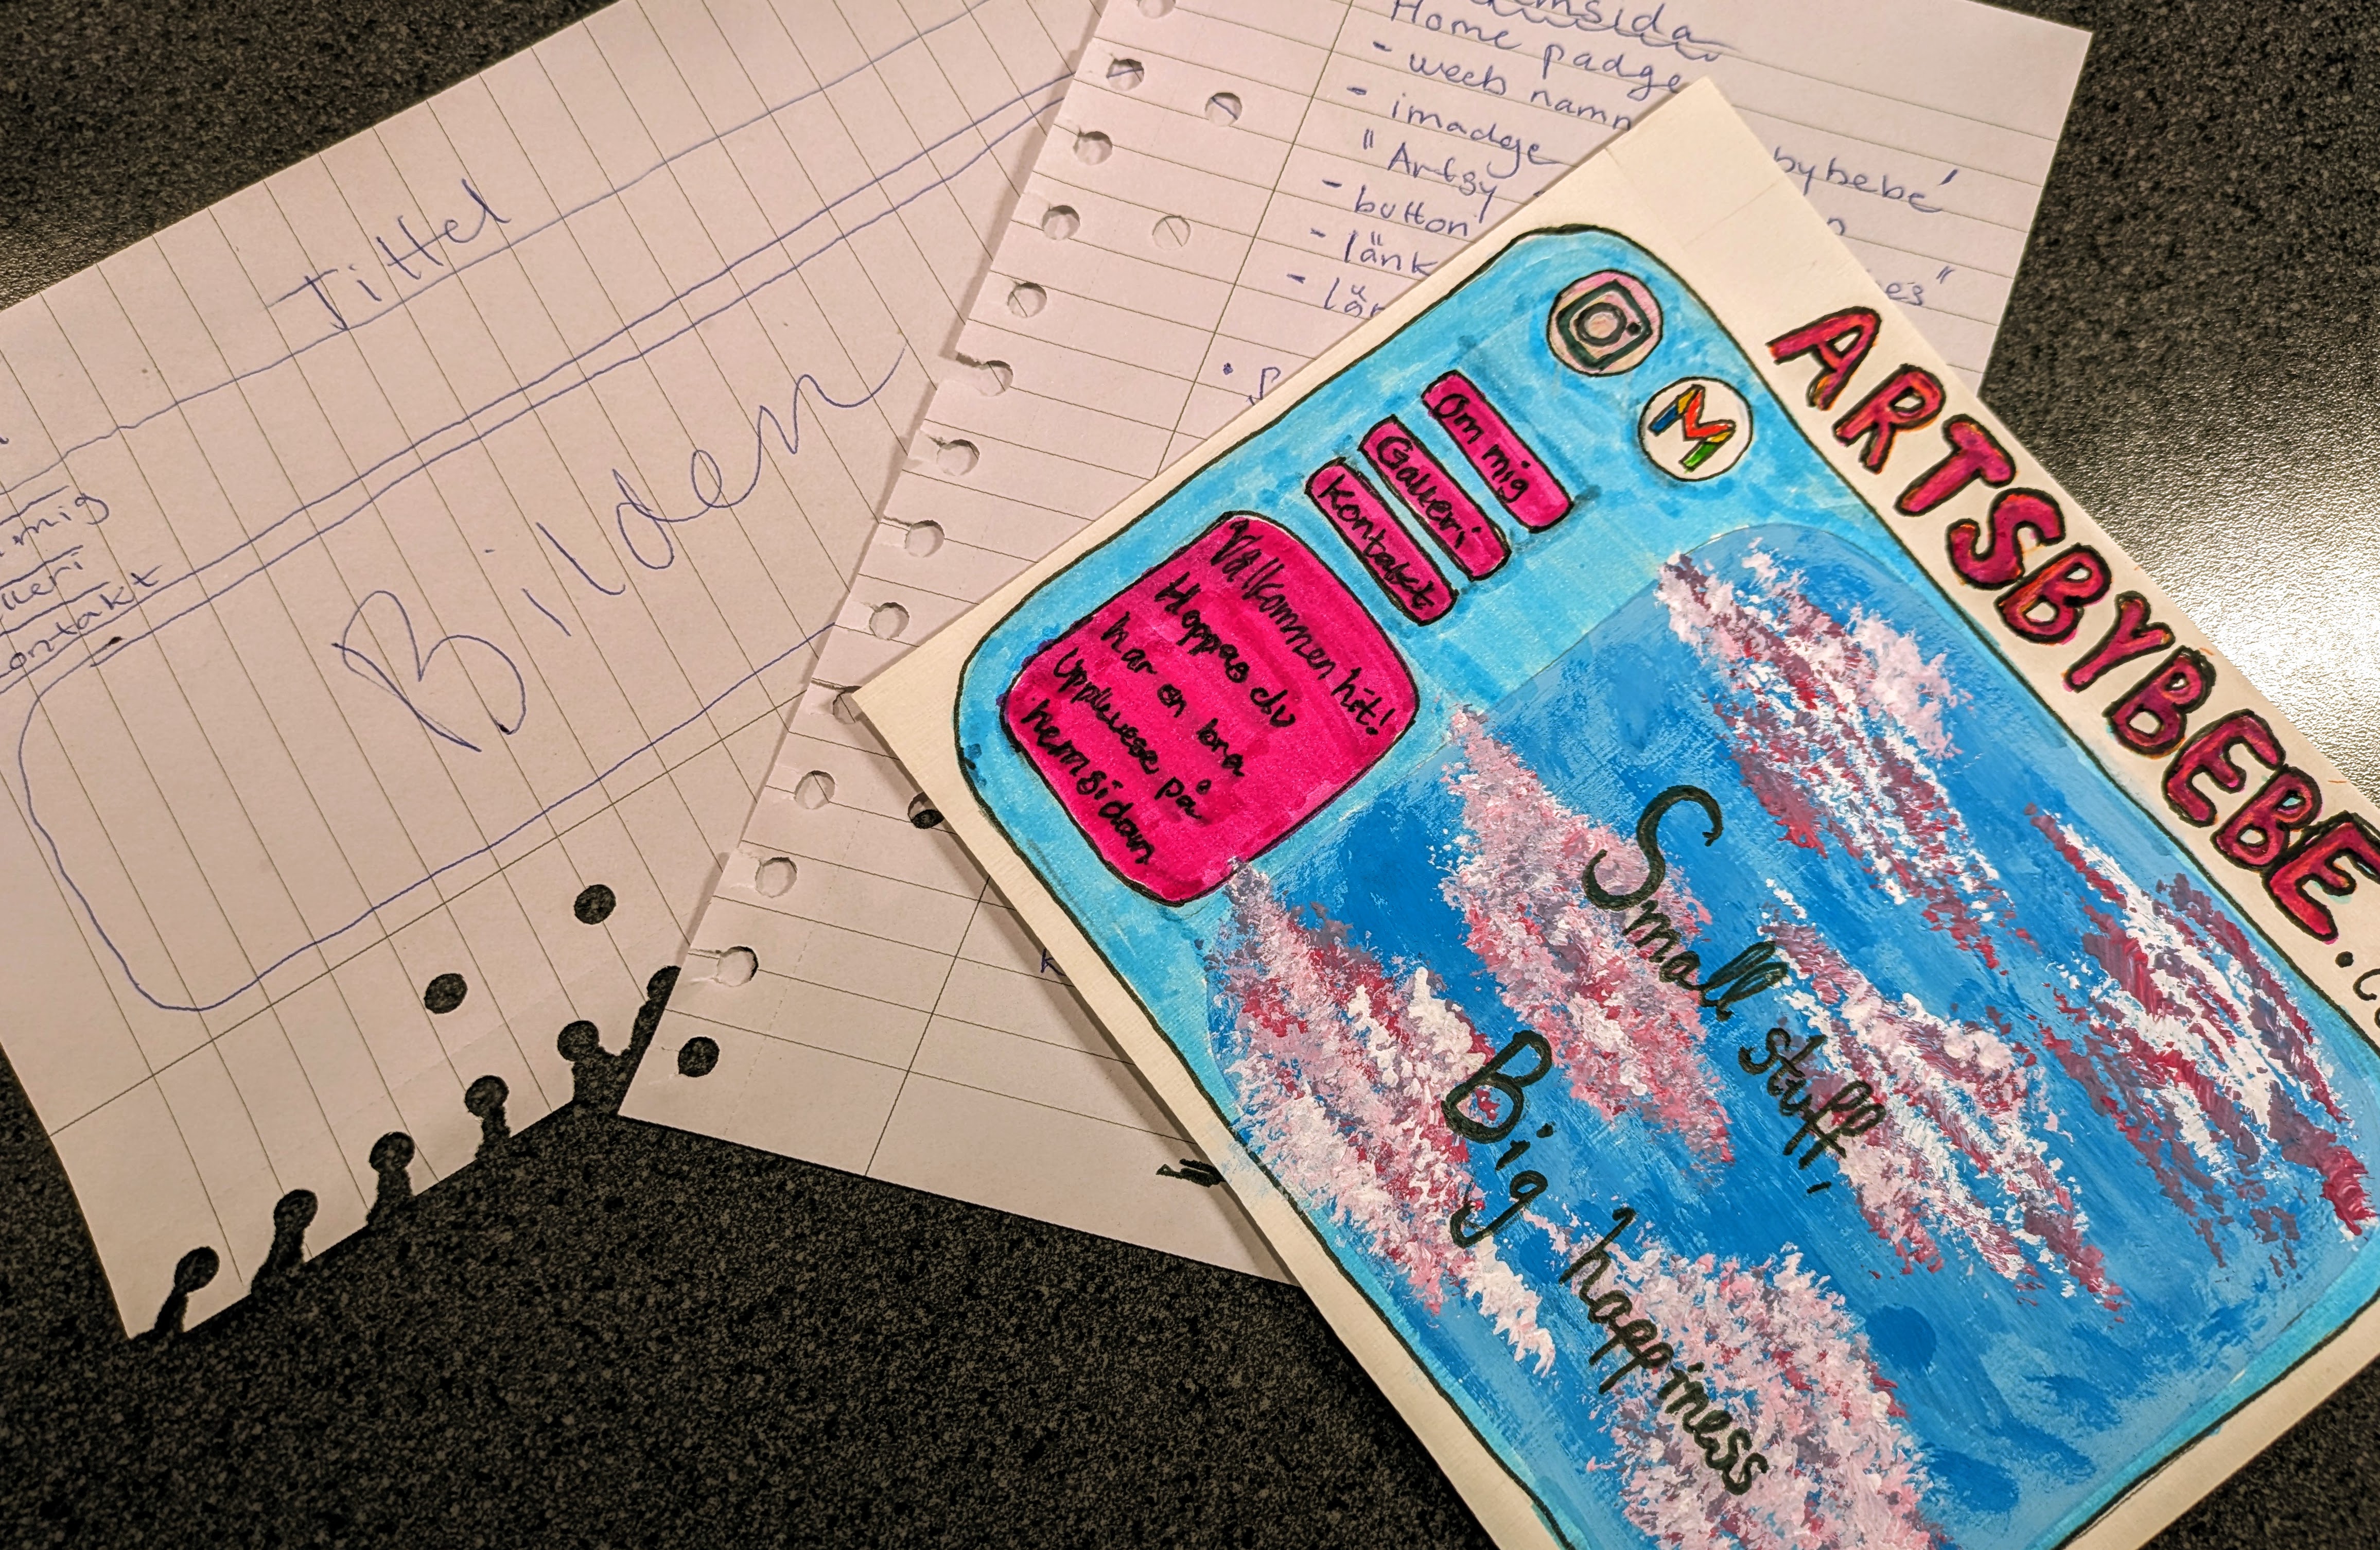 Tittel
mig
kontakt
Bilden
Home padge
- web namn
- imadge
bybebé'
" Artsy
es"
- button
- länk
ARTSBYBEBE.
Om mig
Galleri
Kontakt
Välkommen hit!
Hoppas du
har en bra
Upplevese på
hemsidan
Small stuff,
Big happiness